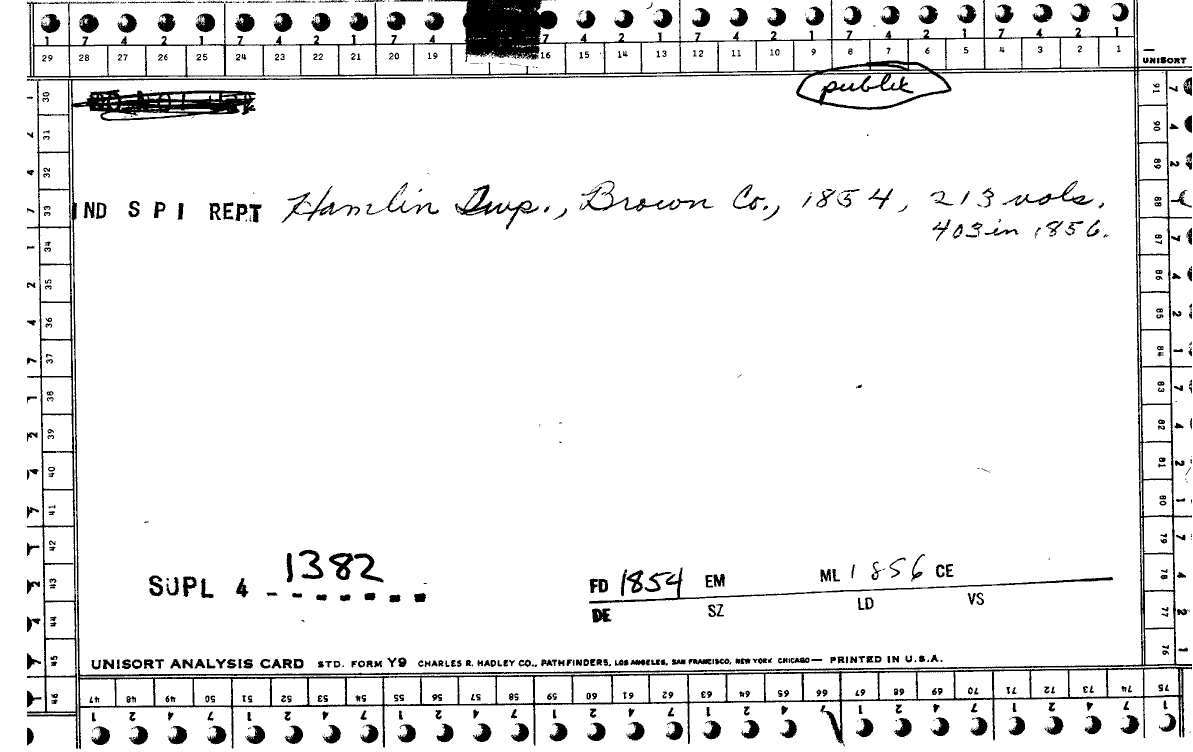 1 7 4 2 1 7 4 2 1 7 4 7 4 2 1 7 4 2 1 7 4 2 1 7 4 2 1
29 28 27 26 25 24 23 22 21 20 19 16 15 14 13 12 11 10 9 8 7 6 5 4 3 2 1
UNISORT
publik
IND S P I REPT Hamlin Twp., Brown Co., 1854, 213 vols.
403 in 1856.
SUPL 4 1382
FD 1854 EM ML 1856 CE
DE SZ LD VS
UNISORT ANALYSIS CARD STD. FORM Y9 CHARLES R. HADLEY CO., PATHFINDERS, LOS ANGELES, SAN FRANCISCO, NEW YORK CHICAGO — PRINTED IN U.S.A.
47 48 49 50 51 52 53 54 55 56 57 58 59 60 61 62 63 64 65 66 67 68 69 70 71 72 73 74 75
1 2 4 7 1 2 4 7 1 2 4 7 1 2 4 7 1 2 4 7 1 2 4 7 1 2 4 7 1